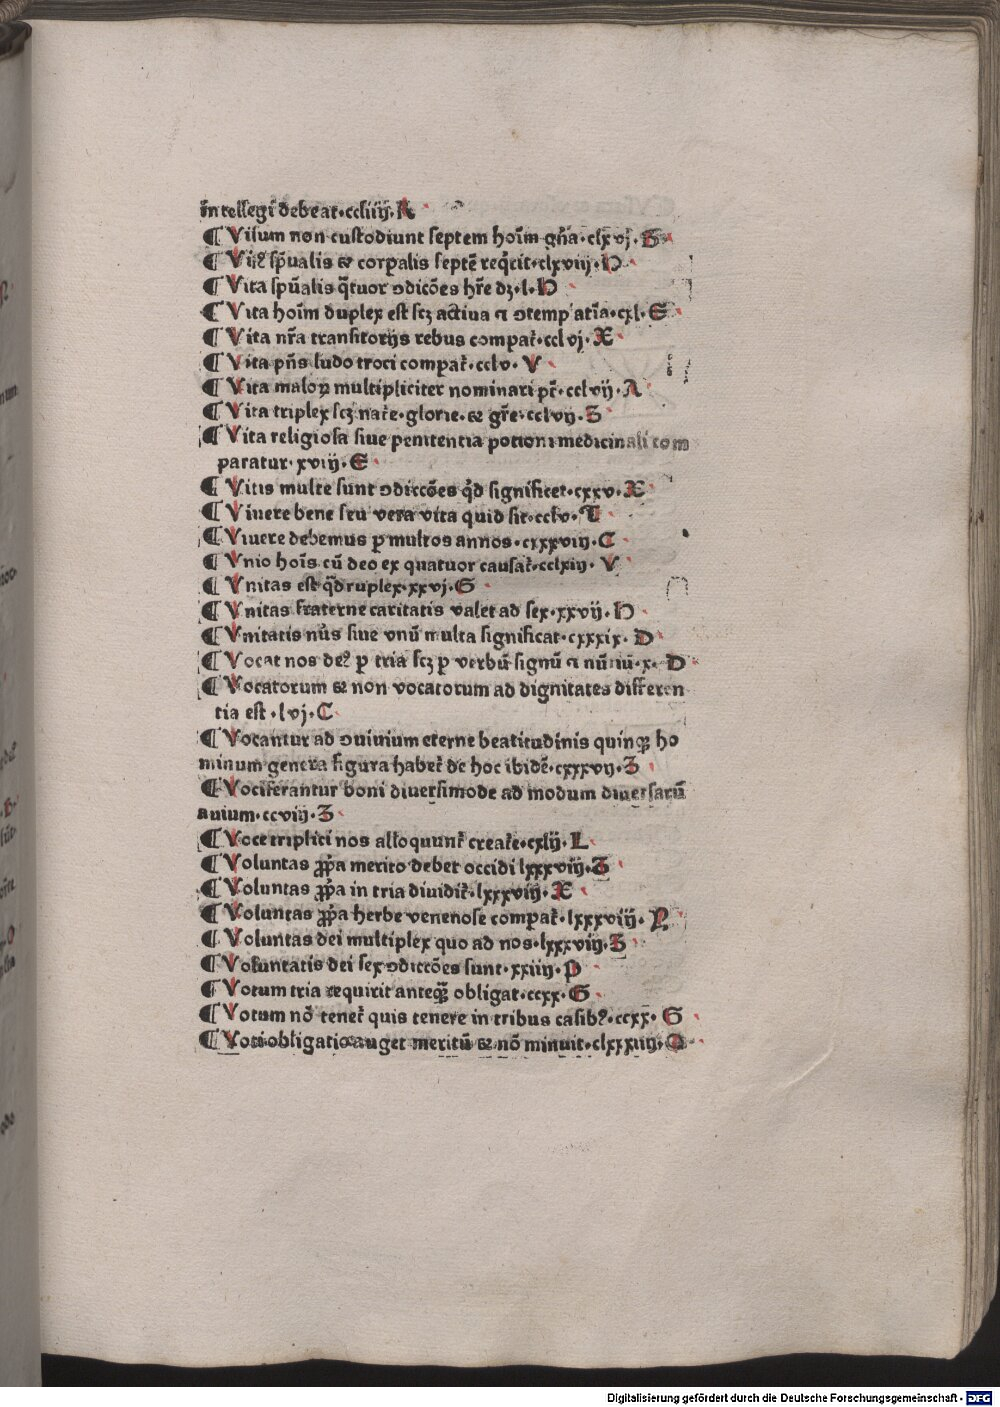 intellegi debeat·ccliiij·K
¶ Visum non custodiunt septem hoīm gn̄a·clxvj·G
¶ Vis̄ spūalis ⁊ corꝑalis septē req̄rit·clxviij·H
¶ Vita spūalis q̄tuor ↄdicōes hr̄e dꝫ·l·H
¶ Vita hoīm duplex est scꝫ actiua ⁊ ↄtemp̄atīa·cxl·E
¶ Vita nr̄a transitorijs rebus compat̄·cclvj·X
¶ Vita pn̄s ludo troci compat̄·cclv·V
¶ Vita maloꝝ multipliciter nominari pt̄·cclvij·A
¶ Vita triplex scꝫ nat̄e·glorie·⁊ gr̄e·cclvij·Z
¶ Vita religiosa siue penitentia potioni medicinali com
paratur·xviij·E
¶ Vitis multe sunt ↄdiccōes qd̄ significet·cxxv·X
¶ Viuere bene seu vera vita quid sit·cclv·T
¶ Viuere debemus ꝑ multos annos·cxxxviij·C
¶ Vnio hoīs cū deo ex quatuor causat̄·cclxiij·V
¶ Vnitas est q̄druplex·xxvj·G
¶ Vnitas fraterne caritatis valet ad sex·xxvij·H
¶ Vnitatis nūs siue vnū multa significat·cxxxix·D
¶ Vocat nos deꝰ ꝑ tria scꝫ ꝑ verbū signū ⁊ nūtiū·x·D
¶ Vocatorum ⁊ non vocatorum ad dignitates differen
tia est·lvj·C
¶ Vocantur ad ↄuiuium eterne beatitudinis quinqꝫ ho
minum genera figura habet̄ de hoc ibidē·cxxxvij·Z
¶ Vociferantur boni diuersimode ad modum diuersarū
auium·ccviij·Z
¶ Voce triplici nos alloquunt̄ creat̄e·cxlij·L
¶ Voluntas ꝓp̄a merito debet occidi lxxxviij·Z
¶ Voluntas ꝓp̄a in tria diuidit̄·lxxxviij·X
¶ Voluntas ꝓp̄a herbe venenose compat̄·lxxxviij·Y
¶ Voluntas dei multiplex quo ad nos·lxxxviij·Z
¶ Voluntatis dei sex ↄdiccōes sunt·xxiiij·P
¶ Votum tria requirit anteqꝫ̄ obligat·ccxx·G
¶ Votum nō tenet̄ quis tenere in tribus casibꝰ·ccxx·G
¶ Voti obligatio auget meritū ⁊ nō minuit·clxxxiiij·Q
Digitalisierung gefördert durch die Deutsche Forschungsgemeinschaft - DFG